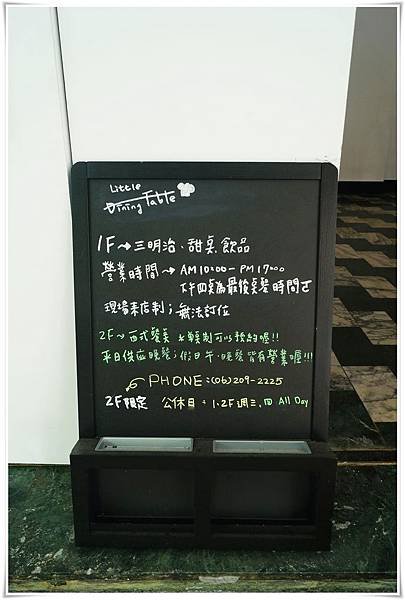 Little
Dining Table
1F~三明治、甜點飲品
營業時間~AM10:00-PM17:00
下午四點為最後點餐時間
現場來店制；無法訂位
2F~西式餐美 可以預約喔!!
平日供應晚餐；假日午、晚餐皆有營業喔!!!
PHONE:(06)209-2225
2F限定 公休日：1、2F週三、四 All Day